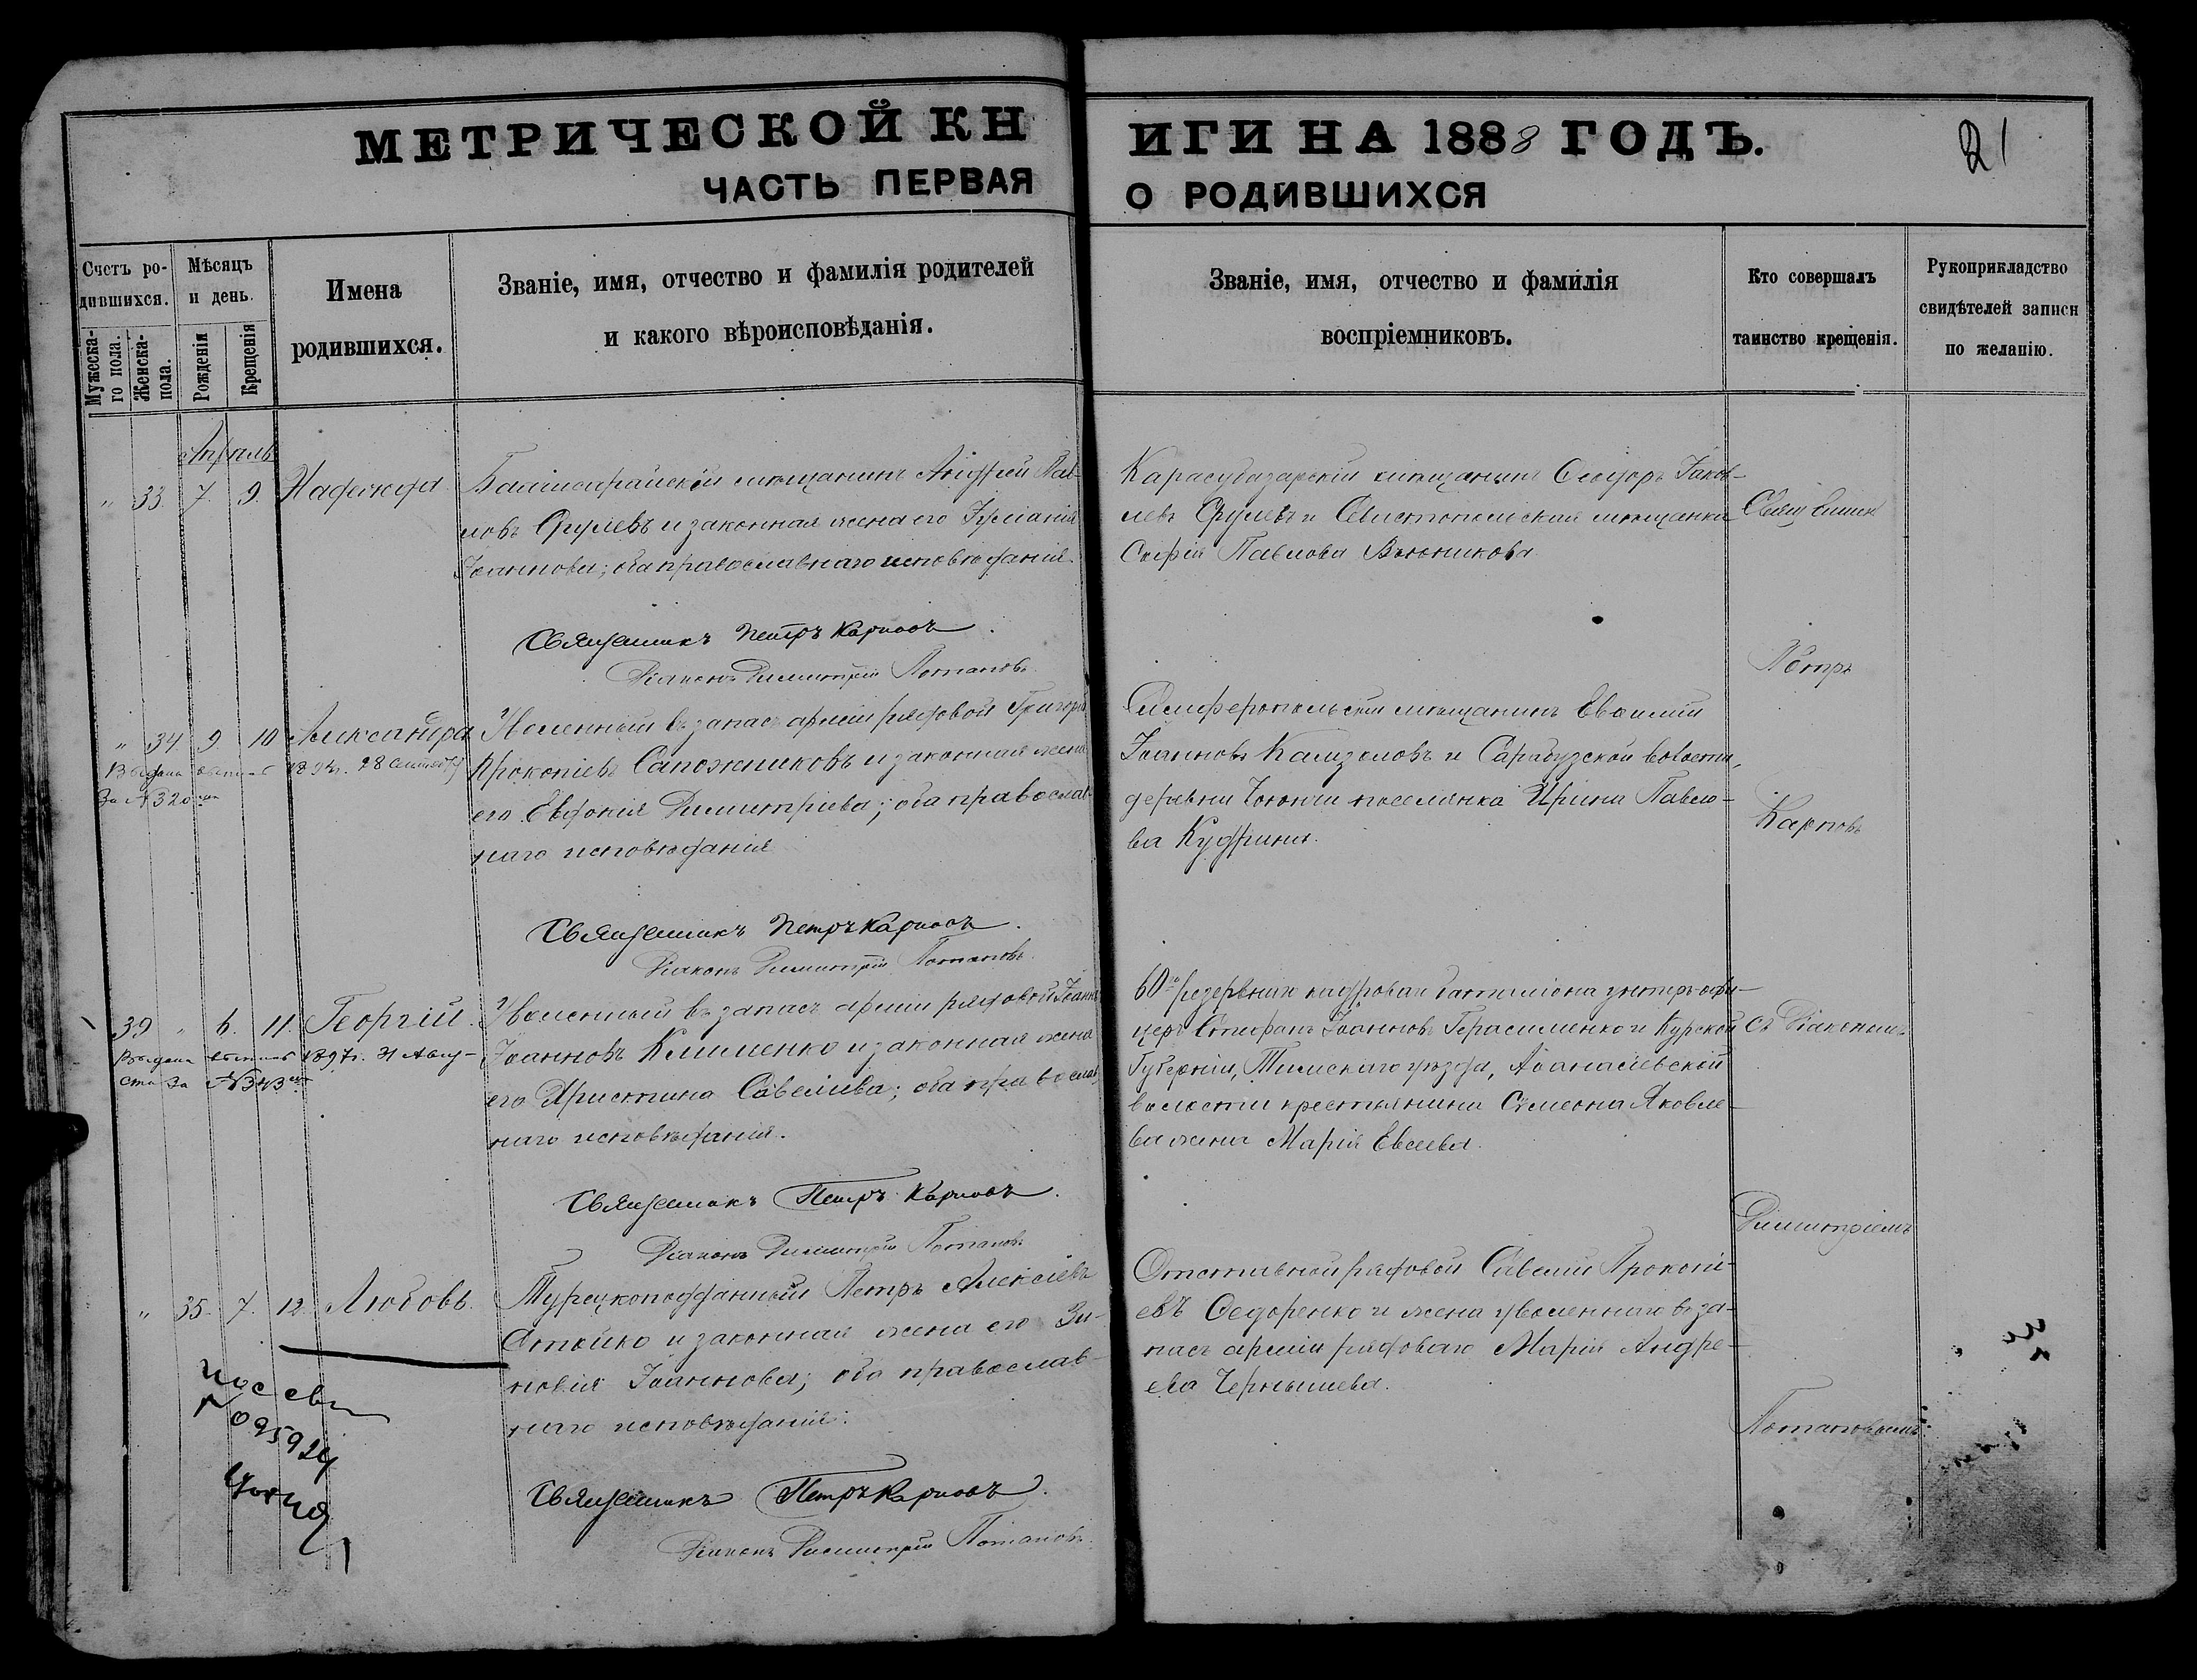 МЕТРИЧЕСКОЙ КН
ИГИ НА 1888 ГОДЪ.
21
ЧАСТЬ ПЕРВАЯ
О РОДИВШИХСЯ
Счетъ ро-
дившихся.
Мужеска-
го пола.
Женска-
пола.
Мѣсяцъ
и день.
Рожденія
Крещенія
Имена
родившихся.
Званіе, имя, отчество и фамилія родителей
и какого вѣроисповѣданія.
Званіе, имя, отчество и фамилія
воспріемниковъ.
Кто совершалъ
таинство крещенія.
Рукоприкладство
свидѣтелей записи
по желанію.
Апрѣль
" 33. 7. 9. Надежда
мѣщанинъ Андрей Пав-
ловъ и законная жена его
Іоаннова; оба православнаго исповѣданія.
Священникъ Петръ Карповъ.
Діаконъ Димитрій Потаповъ.
Карасубазарскій мѣщанинъ Ѳеодоръ Іаков-
левъ и Севастопольская мѣщанка
Софія Павлова Вьюникова.
" 34 9 10 Александра
Выдана выпись 189 г. 28 Сентября
За № 320
Уволенный въ запасъ арміи рядовой Григорій
Прокопіевъ Сапожниковъ и законная жена
его Евдокія Димитріева; оба православ-
наго исповѣданія
Священникъ Петръ Карповъ.
Діаконъ Димитрій Потаповъ.
Симферопольскій мѣщанинъ
Іоанновъ Камзоловъ и Сарабузской волости,
деревни поселянка Ирина Павло-
ва Кудрина.
39 " 6. 11. Георгій.
Выдана выпись 1897 г. 31 Авгу-
ста за № 343
Уволенный въ запасъ арміи рядовой Іоаннъ
Іоанновъ Клименко и законная жена
его Христина Савелиева; оба православ-
наго исповѣданія.
Священникъ Петръ Карповъ.
Діаконъ Димитрій Потаповъ
60го резервнаго кадроваго баталіона унтеръ-офи-
церъ Стефанъ Іоанновъ Герасименко и Курской
Губерніи, Тимскаго уѣзда, Аѳанасіевской
волости крестьянина Симеона Яковле-
ва жена Марія Евсеева.
" 35. 7. 12. Любовь.
Турецкоподданный Петръ Алексіевъ
Стойко и законная жена его Зи-
новія Іоаннова; оба православ-
наго исповѣданія.
Священникъ Петръ Карповъ.
Діаконъ Димитрій Потаповъ.
Отставной рядовой Савелій Прокопі-
евъ Ѳедоренко и жена уволеннаго въ за-
пасъ арміи рядоваго Марія Андре-
ева Чернышева.
Священникъ
Петръ
Карповъ
съ Діакономъ
Димитріемъ
Потаповымъ.